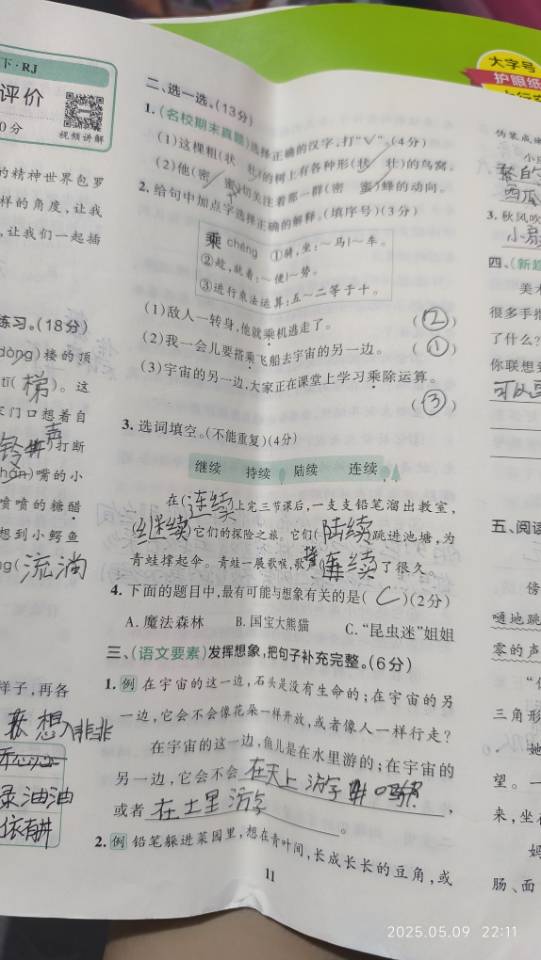 下·RJ
评价
0分
视频讲解
的精神世界包罗
样的角度,让我
,让我们一起插
练习。(18分)
dòng)楼的顶
tī(梯)。这
家门口想着自
铃声)打断
hān)嘴的小
喷喷的糖醋
想到小鳄鱼
ng(流淌
样子,再各
想入非非
绿油油
二、选一选。(13分)
1.(名校期末真题)选择正确的汉字,打“√”。(4分)
(1)这棵粗(状 壮)的树上有各种形(状 壮)的鸟窝。
(2)他(密 蜜)切关注着那一群(密 蜜)蜂的动向。
2. 给句中加点字选择正确的解释。(填序号)(3分)
乘 chéng ①骑,坐:~马|~车。
②趁,就着:~便|~势。
③进行乘法运算:五~二等于十。
(1)敌人一转身,他就乘机逃走了。 (②)
(2)我一会儿要搭乘飞船去宇宙的另一边。 (①)
(3)宇宙的另一边,大家正在课堂上学习乘除运算。
(③)
3. 选词填空。(不能重复)(4分)
继续 持续 陆续 连续
在(连续)上完三节课后,一支支铅笔溜出教室,
(继续)它们的探险之旅。它们(陆续)跳进池塘,为
青蛙撑起伞。青蛙一展歌喉,歌声(连续)了很久。
4. 下面的题目中,最有可能与想象有关的是(C)(2分)
A. 魔法森林 B. 国宝大熊猫 C. “昆虫迷”姐姐
三、(语文要素)发挥想象,把句子补充完整。(6分)
1. 例 在宇宙的这一边,石头是没有生命的;在宇宙的另
一边,它会不会像花朵一样开放,或者像人一样行走?
在宇宙的这一边,鱼儿是在水里游的;在宇宙的
另一边,它会不会在天上游
或者在土里游 。
2. 例 铅笔躲进菜园里,想在青叶间,长成长长的豆角,或
11
大字号
护眼纸
小
西瓜
3. 秋风吹
小扇
四、(新题
美术
很多手指
了什么?
你联想到
可以
五、阅读
傍
嗵地跳
零的声
三角形
她
望。一
来,坐在
妈
肠、面
2025.05.09 22:11